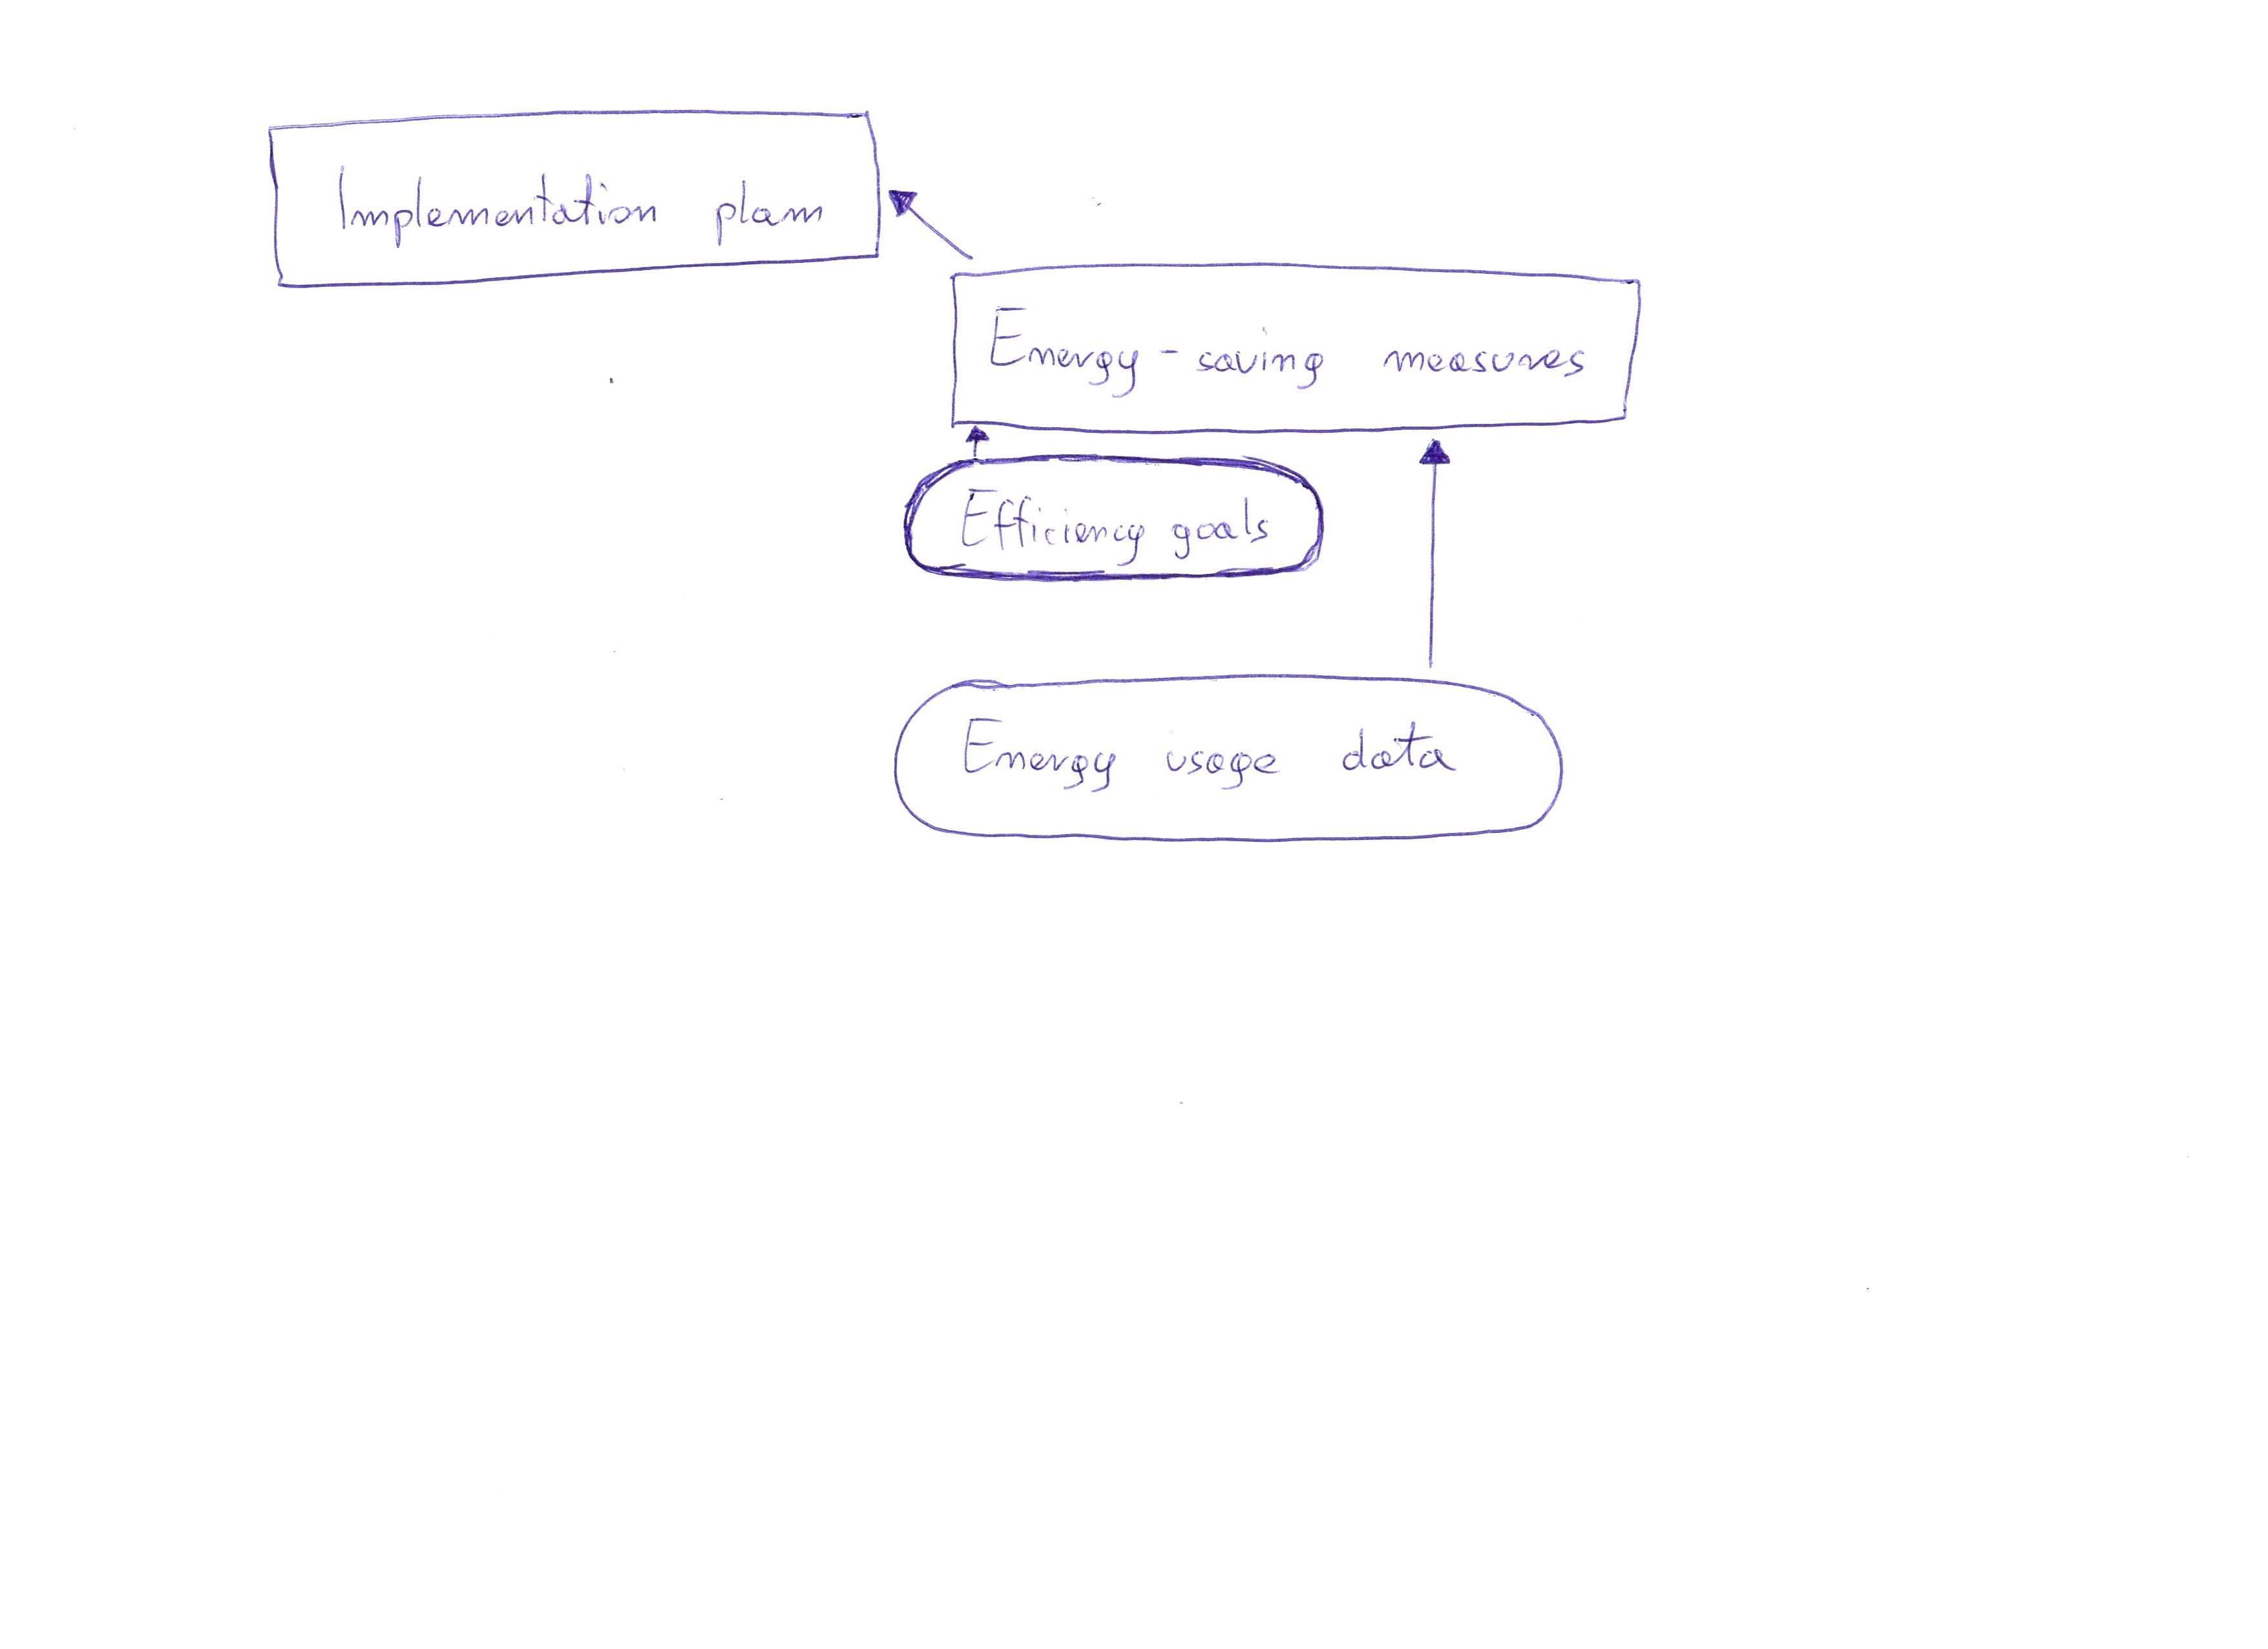 Implementation plan
Energy-saving measures
Efficiency goals
Energy usage data